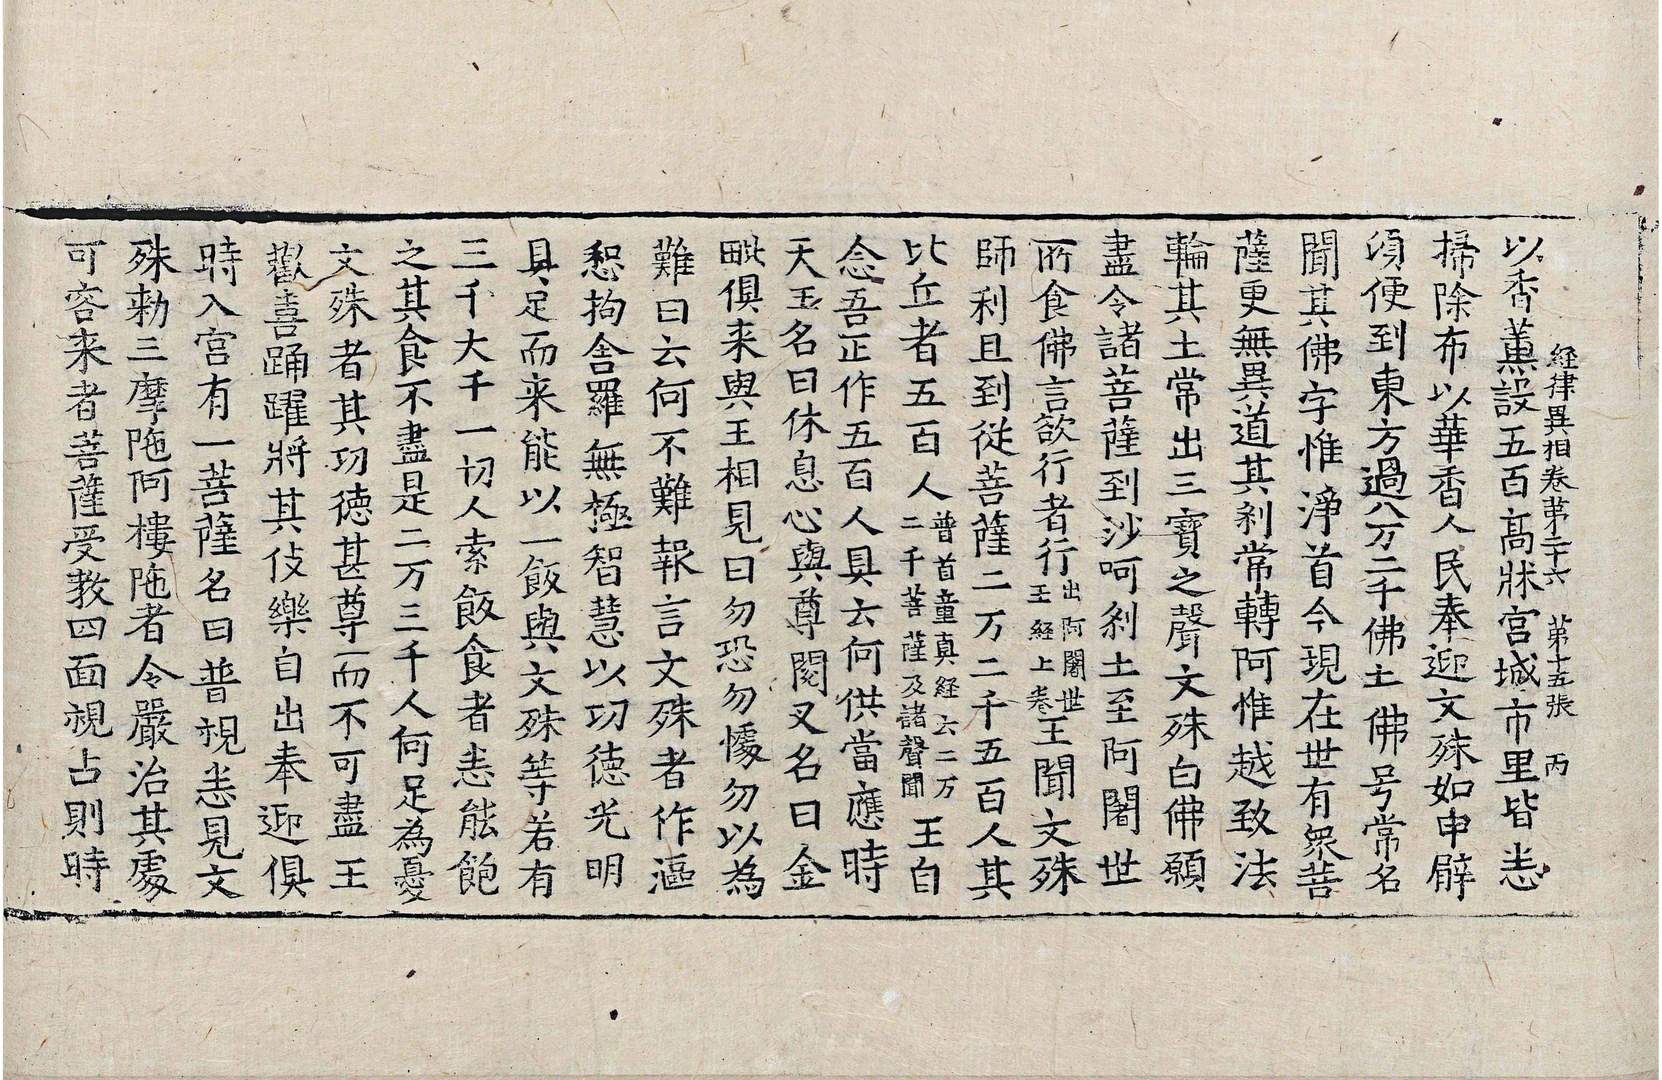 經律異相卷第二十六　第十五張　丙
以香薰設五百高牀宮城市里皆悉
掃除布以華香人民奉迎文殊如申臂
頃便到東方過八万二千佛土佛号常名
聞其佛字惟淨首今現在世有衆菩
薩更無異道其刹常轉阿惟越致法
輪其土常出三寶之聲文殊白佛願
盡令諸菩薩到沙呵刹土至阿闍世
所食佛言欲行者行出阿闍世王經上卷王聞文殊
師利且到從菩薩二万二千五百人其
比丘者五百人普首童真経云二万二千菩薩及諸聲聞王自
念吾正作五百人具云何供當應時
天王名曰休息心與尊閱叉名曰金
毗俱来與王相見曰勿恐勿懅勿以為
難曰云何不難報言文殊者作漚
惒拘舍羅無極智慧以功德光明
具足而来能以一飯與文殊等若有
三千大千一切人索飯食者悉能飽
之其食不盡是二万三千人何足為憂
文殊者其功德甚尊而不可盡王
歡喜踊躍將其伎樂自出奉迎俱
時入宮有一菩薩名曰普視悉見文
殊勑三摩陁阿樓陁者令嚴治其處
可容来者菩薩受教四面視占則時